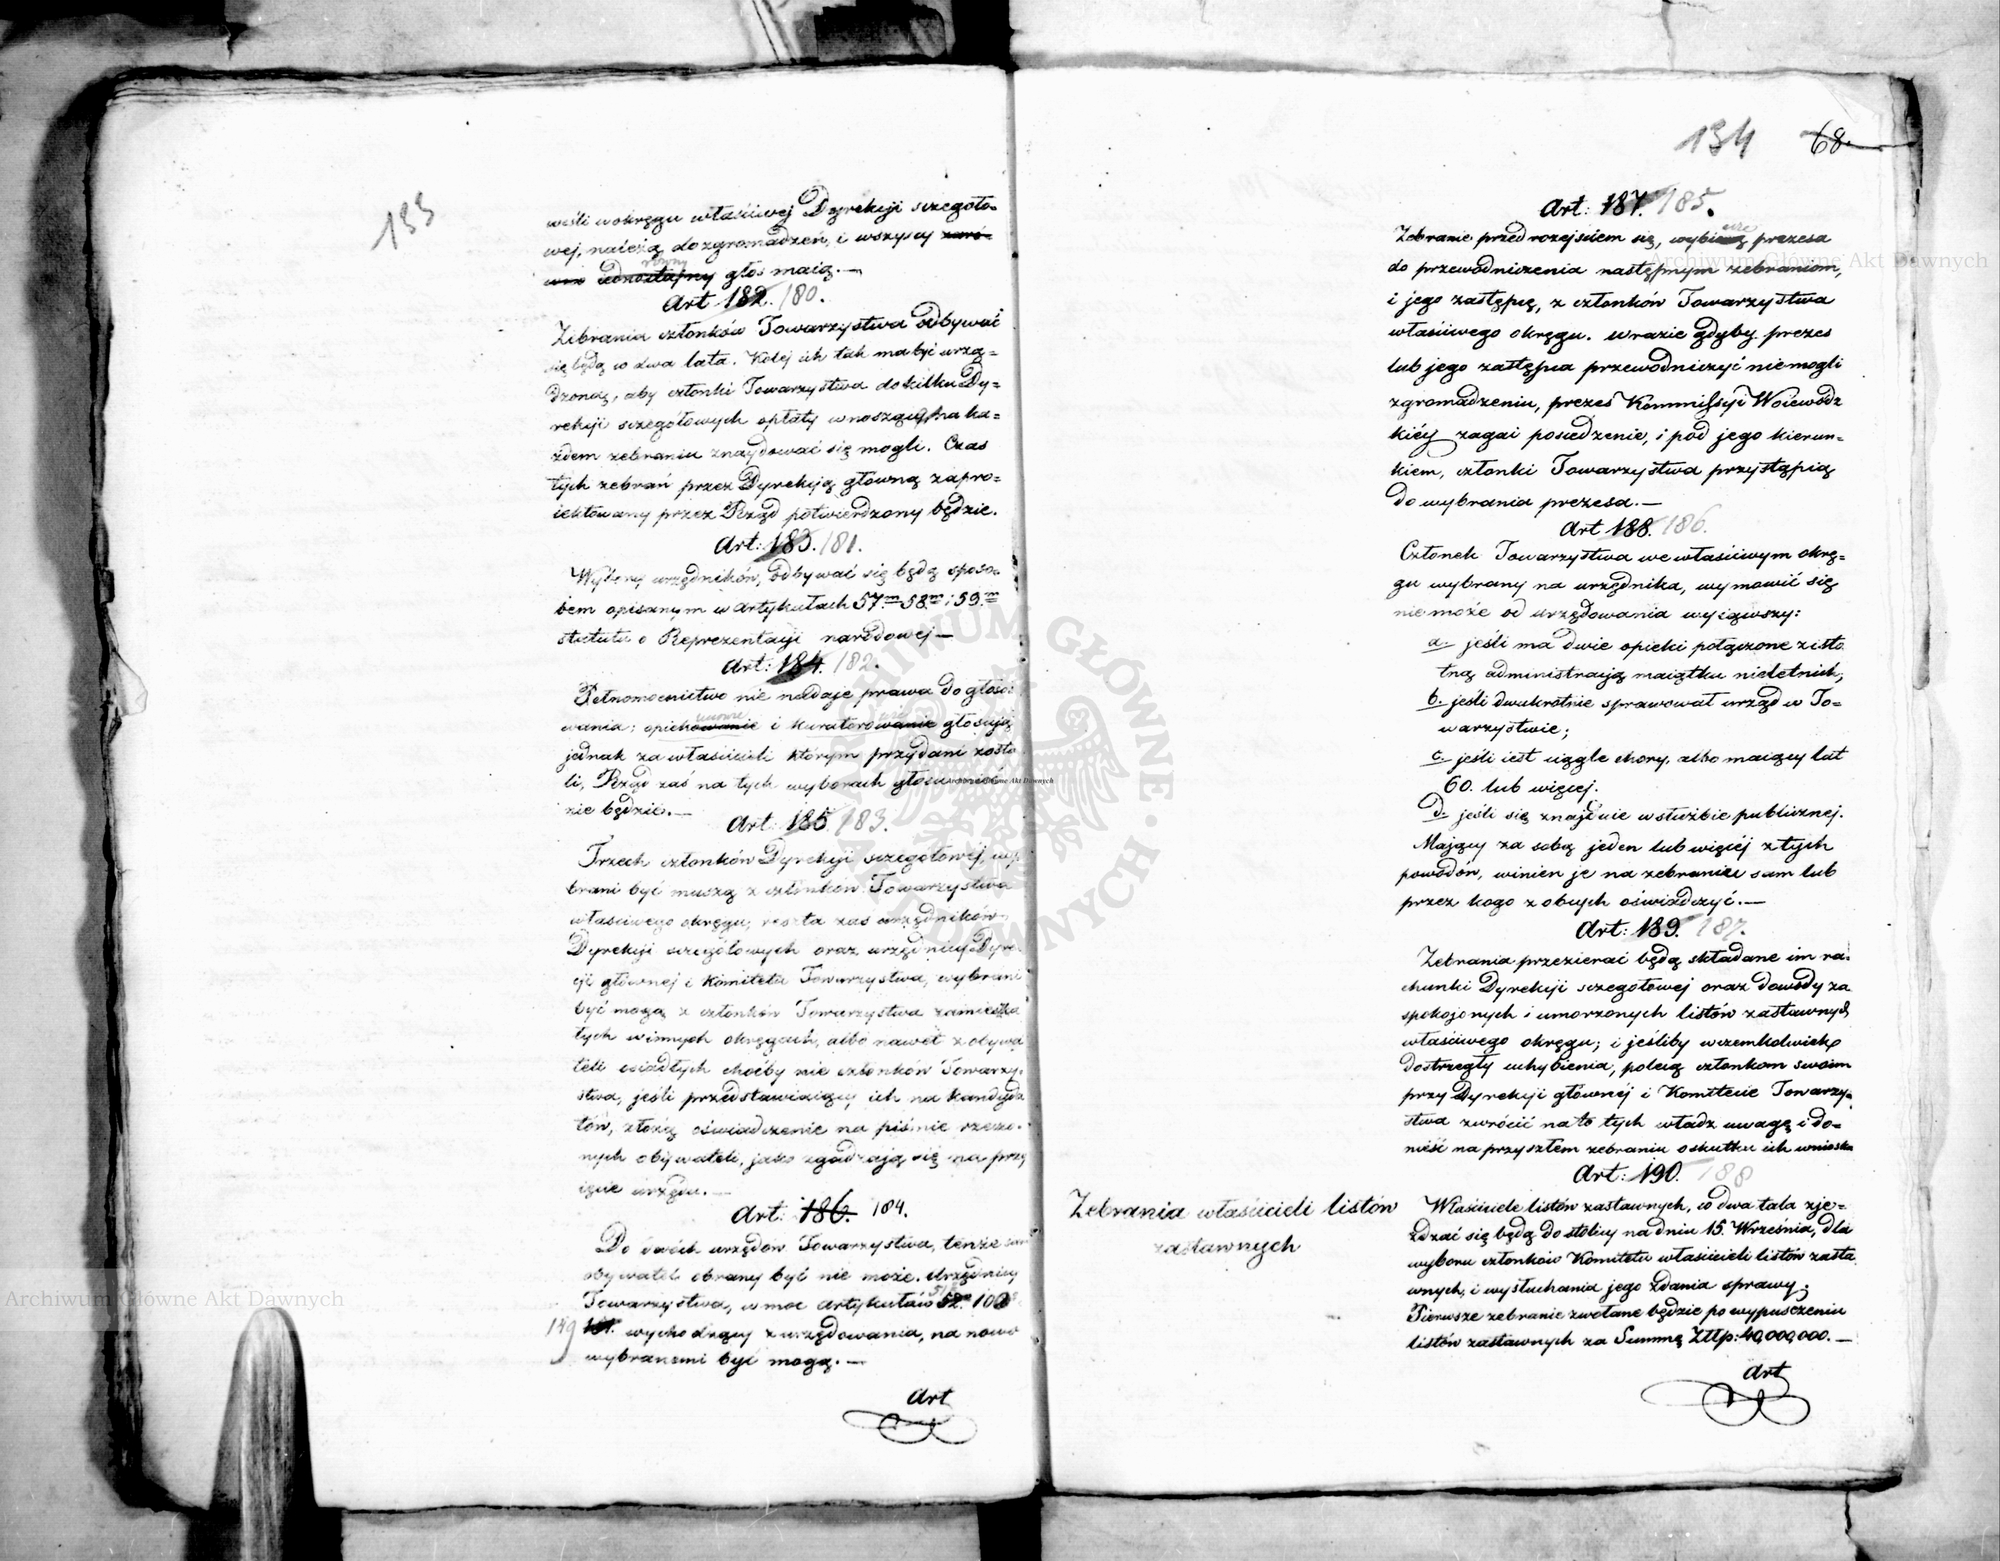 133
wiśli w okręgu właściwej Dyrekcji szczegóło-
wej, należą do zgromadzeń, i wszyscy zaró-
wno jednostajny głos maią. —
równy
Art. 182. 180.
Zebrania członków Towarzystwa odbywać
się będą co dwa lata. Koléj ich tak ma być urzą-
dzoną, aby członki Towarzystwa do kilku Dy-
rekcji szczegółowych opłaty wnoszący, na ka-
żdem zebraniu znaydować się mogli. Czas
tych zebrań przez Dyrekcją główną zapro-
iektowany przez Rząd potwierdzony będzie.
Art: 183. 181.
Wybory urzędników, odbywać się będą sposo-
bem opisanym w artykułach 57.m 58.m i 59.m
statutu o Reprezentacji narodowej —
Art: 184. 182.
Pełnomocnictwo nie nadaje prawa do głoso-
wania; opiekowanie i kuratorowanie głosują
jednak za właścicieli którym przydani zosta
li, Rząd zaś na tych wyborach głosować
nie będzie. —
Art: 185. 183.
Trzech członków Dyrekcji szczegółowéj, wy-
brani być muszą z członków Towarzystwa
właściwego okręgu, reszta zaś urzędników
Dyrekcji szczegółowych oraz urzędnicy Dyre-
cji głównej i Komitetu Towarzystwa, wybrani
być mogą z członków Towarzystwa zamieszka
łych w innych okręgach, albo nawet z obywa
teli osiadłych choćby nie członków Towarzy-
stwa, jeśli przedstawiaiący ich na kandyda
tów, złożą oświadczenie na piśmie rzeczo-
nych obywateli, jako zgadzają się na przy
ięcie urzędu. —
Art: 186. 184.
Do dwóch urzędów Towarzystwa, tenże sam
obywatel obrany być nie może. Urzędnicy
Towarzystwa, w moc artykułów 52.
149 wychodzący z urzędowania, na nowo
wybranemi być mogą. —
Art
134 68.
Art: 187. 185.
Zebranie przed rozejściem się, wybierze prezesa
do przewodniczenia następnym zebraniom,
i jego zastępcę, z członków Towarzystwa
właściwego okręgu. w razie gdyby prezes
lub jego zastępca przewodniczyć nie mogli
zgromadzeniu, prezes Kommissyi Woiewódz
kiéy zagai posiedzenie, i pod jego kierun-
kiem, członki Towarzystwa przystąpią
do wybrania prezesa. —
Art 188. 186.
Członek Towarzystwa we właściwym okrę-
gu wybrany na urzędnika, wymowić się
nie może od urzędowania wyiąwszy:
a. jeśli ma dwie opieki połączone z isto
tną administracją maiątku nieletnich,
b. jeśli dwukrotnie sprawował urząd w To-
warzystwie;
c. jeśli iest ciągle chory, albo maiący lat
60. lub więcej.
d. jeśli się znajduie w służbie publicznej.
Mający za sobą jeden lub więcéj z tych
powodów, winien je na zebraniu sam lub
przez kogo z obcych oświadczyć. —
Art: 189. 187.
Zebrania przezierać będą składane im ra-
chunki Dyrekcji szczegółowej oraz dowody za
spokojonych i umorzonych listów zastawnych
właściwego okręgu; i jeśliby w czemkolwiek
dostrzegły uchybienia, polecą członkom swoim
przy Dyrekcji głównéj i Komitecie Towarzy-
stwa zwrócić na to tych władz uwagę i do-
nieść na przyszłem zebraniu o skutku ich wniosku
Art: 190. 188
Zebrania właścicieli listów
zastawnych
Właściciele listów zastawnych, co dwa lata zje-
żdzać się będą do stolicy na dniu 15. Września, dla
wyboru członków Komitetu właścicieli listów zasta
wnych, i wysłuchania jego zdania sprawy;
Pierwsze zebranie zwołane będzie po wypuszczeniu
listów zastawnych za Summę Złtp: 40,000,000. —
Art
Archiwum Główne Akt Dawnych
Archiwum Główne Akt Dawnych
Archiwum Główne Akt Dawnych
ARCHIWUM GŁÓWNE AKT DAWNYCH